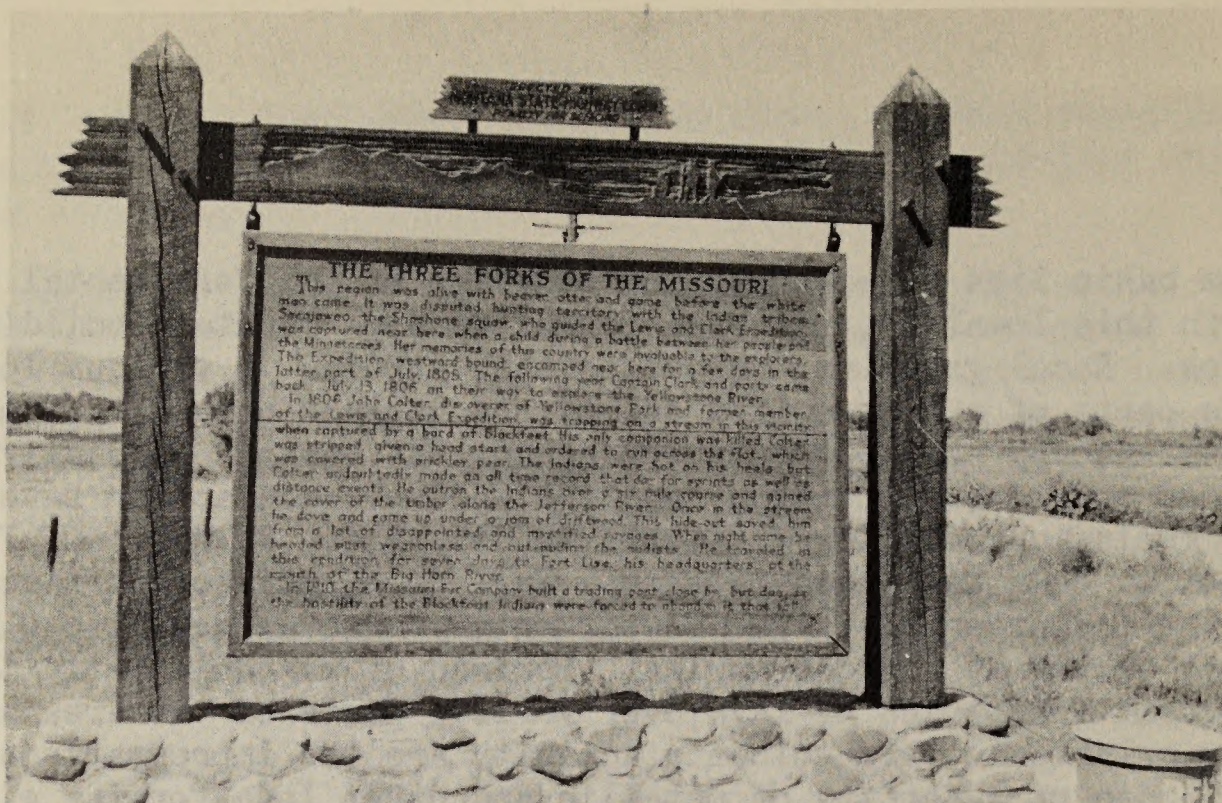 ERECTED BY
MONTANA STATE HIGHWAY COMM.
THE THREE FORKS OF THE MISSOURI
This region was alive with beaver otter and game before the white
man came. It was disputed hunting territory with the Indian tribes.
Sacajawea, the Shoshone squaw, who guided the Lewis and Clark Expedition,
was captured near here when a child during a battle between her people and
the Minnetarees. Her memories of this country were invaluable to the explorers.
The Expedition, westward bound, encamped near here for a few days in the
latter part of July, 1805. The following year Captain Clark and party came
back, July 13, 1806, on their way to explore the Yellowstone River.
In 1808, John Colter, discoverer of Yellowstone Park and former member
of the Lewis and Clark Expedition, was trapping on a stream in this vicinity
when captured by a band of Blackfeet. His only companion was killed. Colter
was stripped, given a head start and ordered to run across the flat, which
was covered with prickley pear. The Indians were hot on his heels but
Colter undoubtedly made an all time record that day for sprints as well as
distance events. He outran the Indians over a six mile course and gained
the cover of the timber along the Jefferson River. Once in the stream
he dove and came up under a jam of driftwood. This hide-out saved him
from a lot of disappointed and mystified savages. When night came he
headed east, weaponless and outnuding the nudists. He traveled in
this condition for seven days to Fort Lisa, his headquarters, at the
mouth of the Big Horn River.
In 1810 the Missouri Fur Company built a trading post close by, but due to
the hostility of the Blackfoot Indians were forced to abandon it that fall.